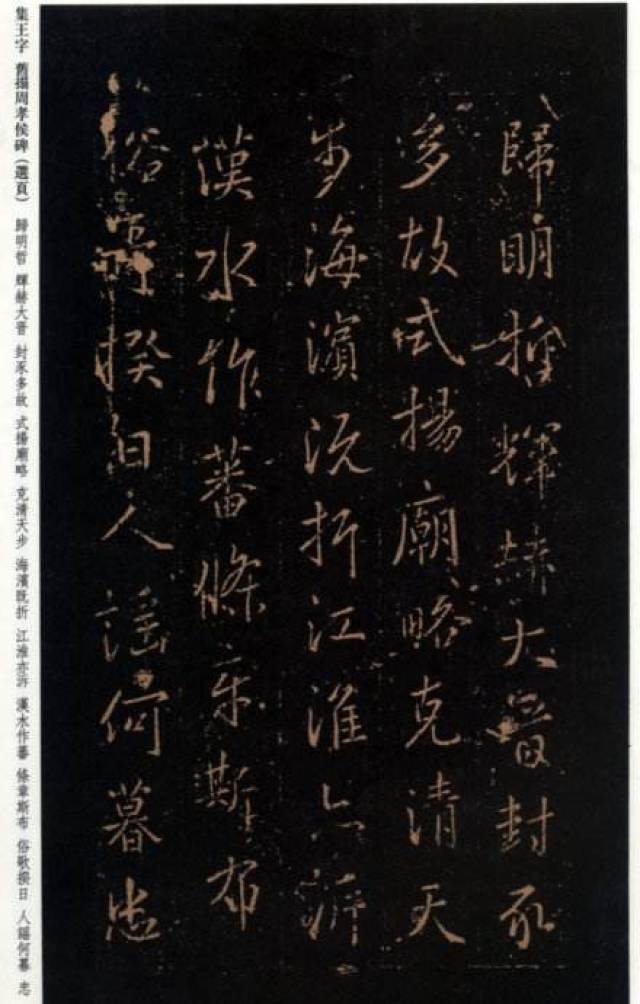 歸明哲輝赫大晉封豕
多故式揚廟略克清天
步海濱既折江淮亦泝
漢水作蕃條章斯布
俗歌揆日人謡何暮忠
集王字 舊搨周孝侯碑(選頁) 歸明哲 輝赫大晉 封豕多故 式揚廟略 克清天步 海濱既折 江淮亦泝 漢水作蕃 條章斯布 俗歌揆日 人謡何暮 忠